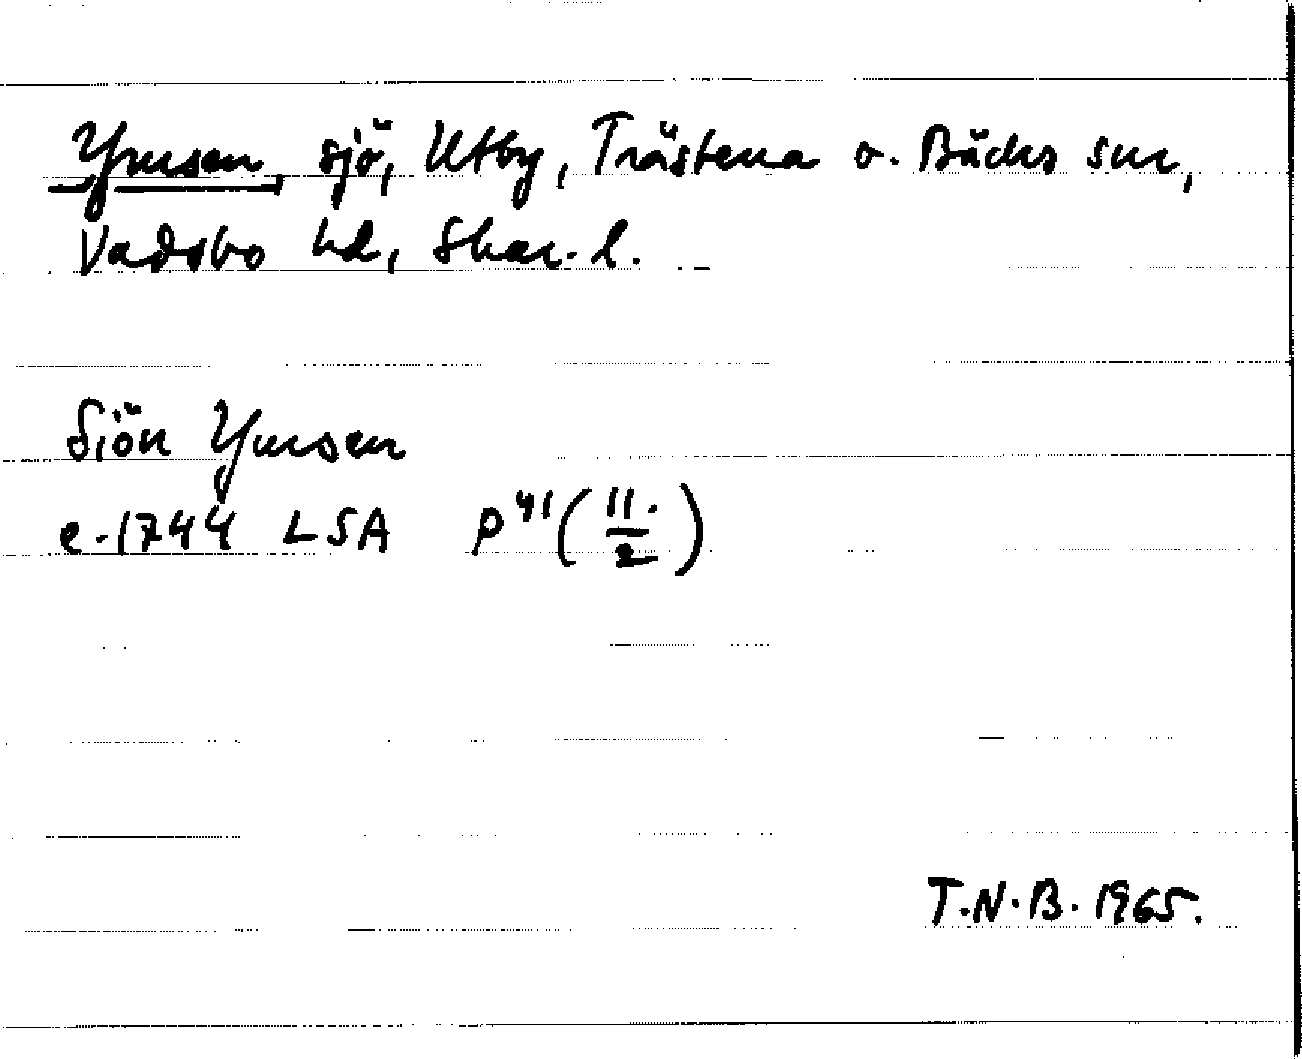 Ymsen, sjö, Utby, Trästena o. Bäcks snr,
Vadsbo hd, Skar. l.
Siön Ymsen
e. 1744 LSA P 41 (11./2)
T.N.B. 1965.